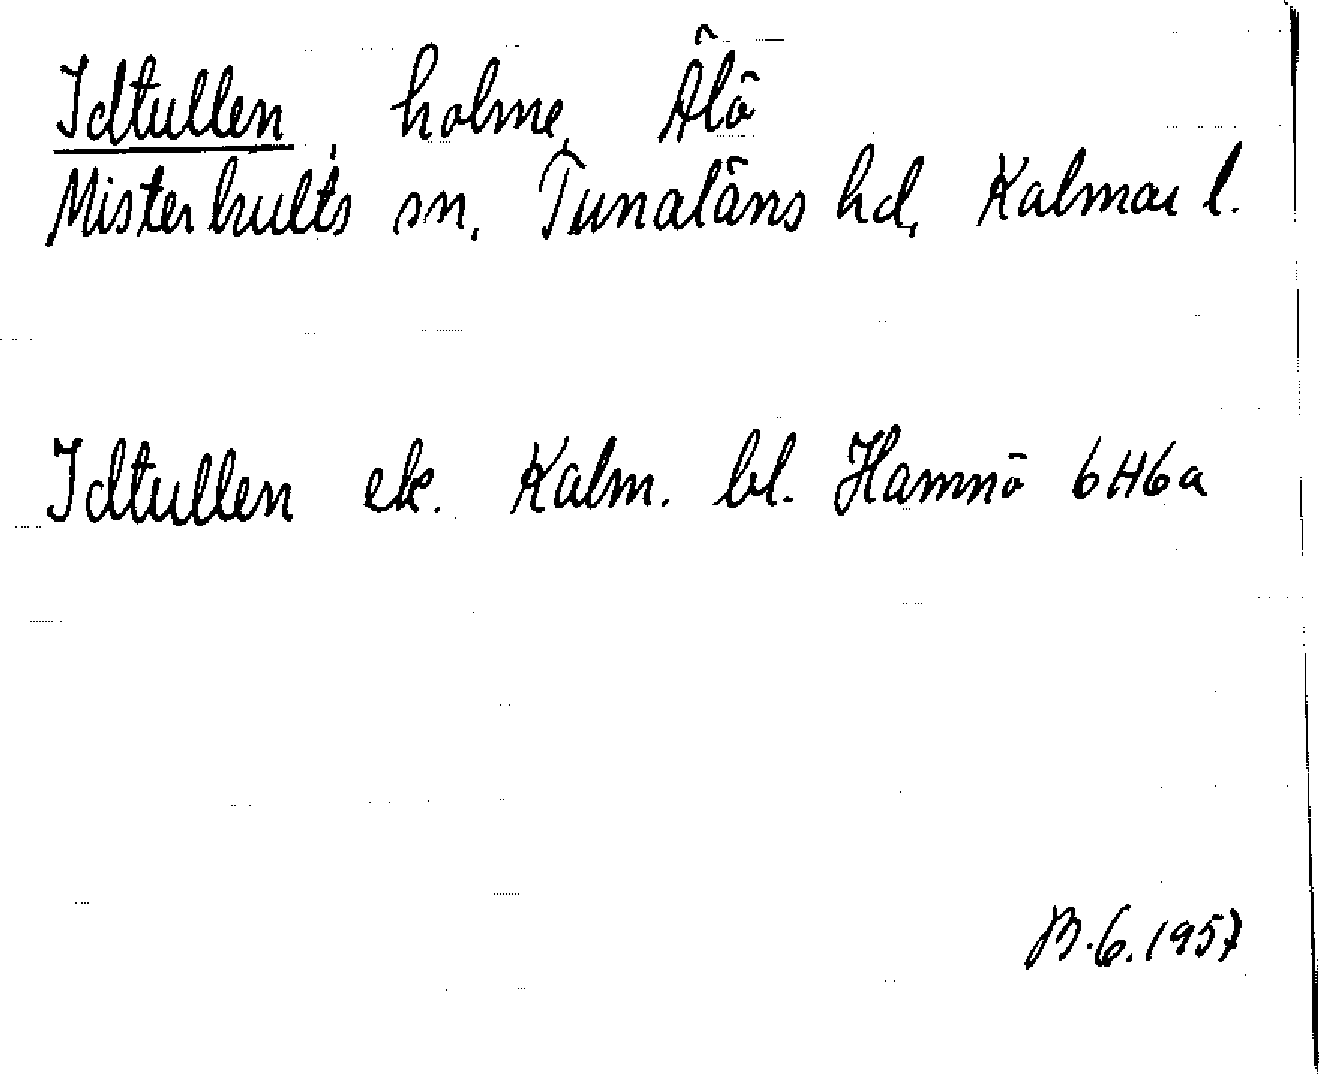 Idtullen, holme, Älö
Misterhults sn, Tunaläns hd, Kalmar l.
Idtullen ek. Kalm. bl. Hamnö 6H6a
B.G.1957